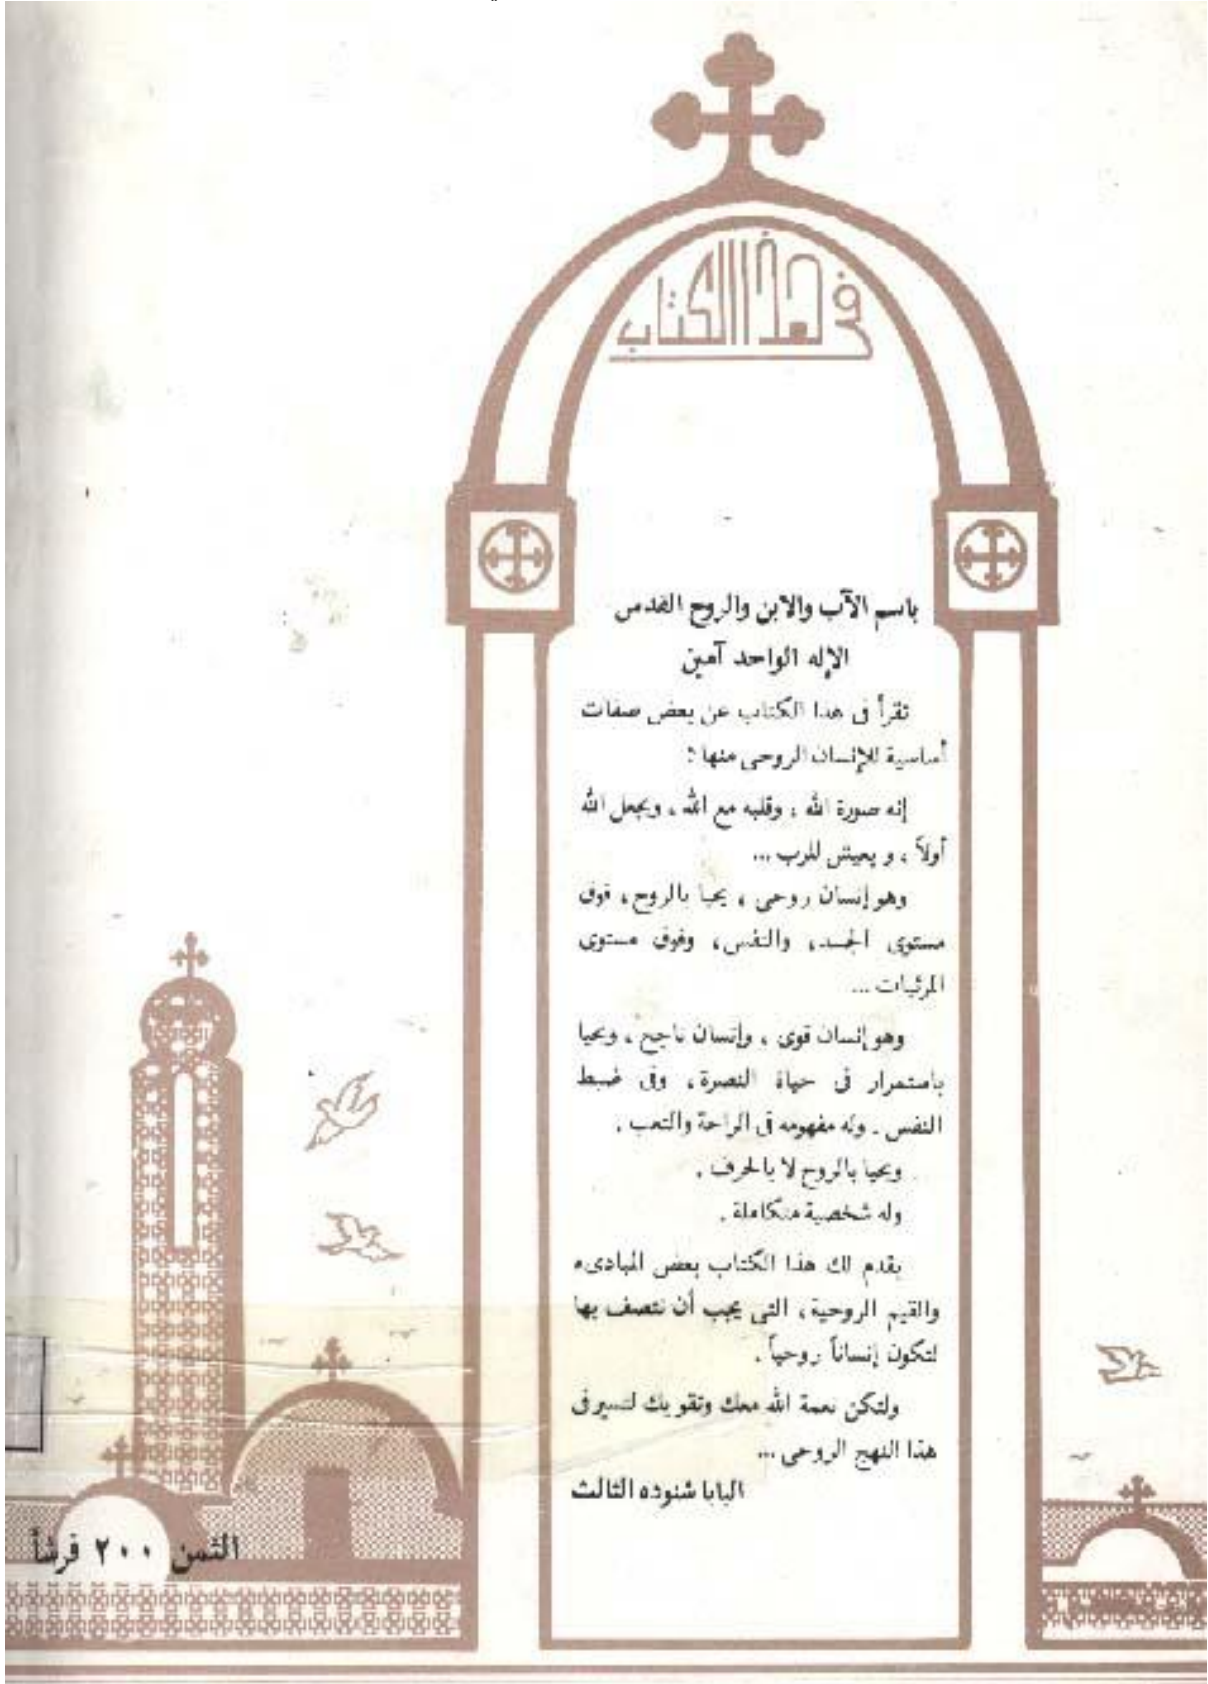 فى هذا الكتاب
باسم الآب والابن والروح القدس
الإله الواحد آمين
تقرأ فى هذا الكتاب عن بعض صفات
أساسية للإنسان الروحى منها :
إنه صورة الله ، وقلبه مع الله ، ويجعل الله
أولاً ، ويعيش للرب ...
وهو إنسان روحى ، يحيا بالروح ، فوق
مستوى الجسد، والنفس، وفوق مستوى
المرئيات ...
وهو إنسان قوى ، وإنسان ناجح ، ويحيا
باستمرار فى حياة النصرة، وفى ضبط
النفس . وله مفهومه فى الراحة والتعب .
ويحيا بالروح لا بالحرف .
وله شخصية متكاملة .
يقدم لك هذا الكتاب بعض المبادىء
والقيم الروحية، التى يجب أن تتصف بها
لتكون إنساناً روحياً .
ولتكن نعمة الله معك وتقويك لتسير فى
هذا النهج الروحى ...
البابا شنوده الثالث
الثمن ٢٠٠ قرشاً